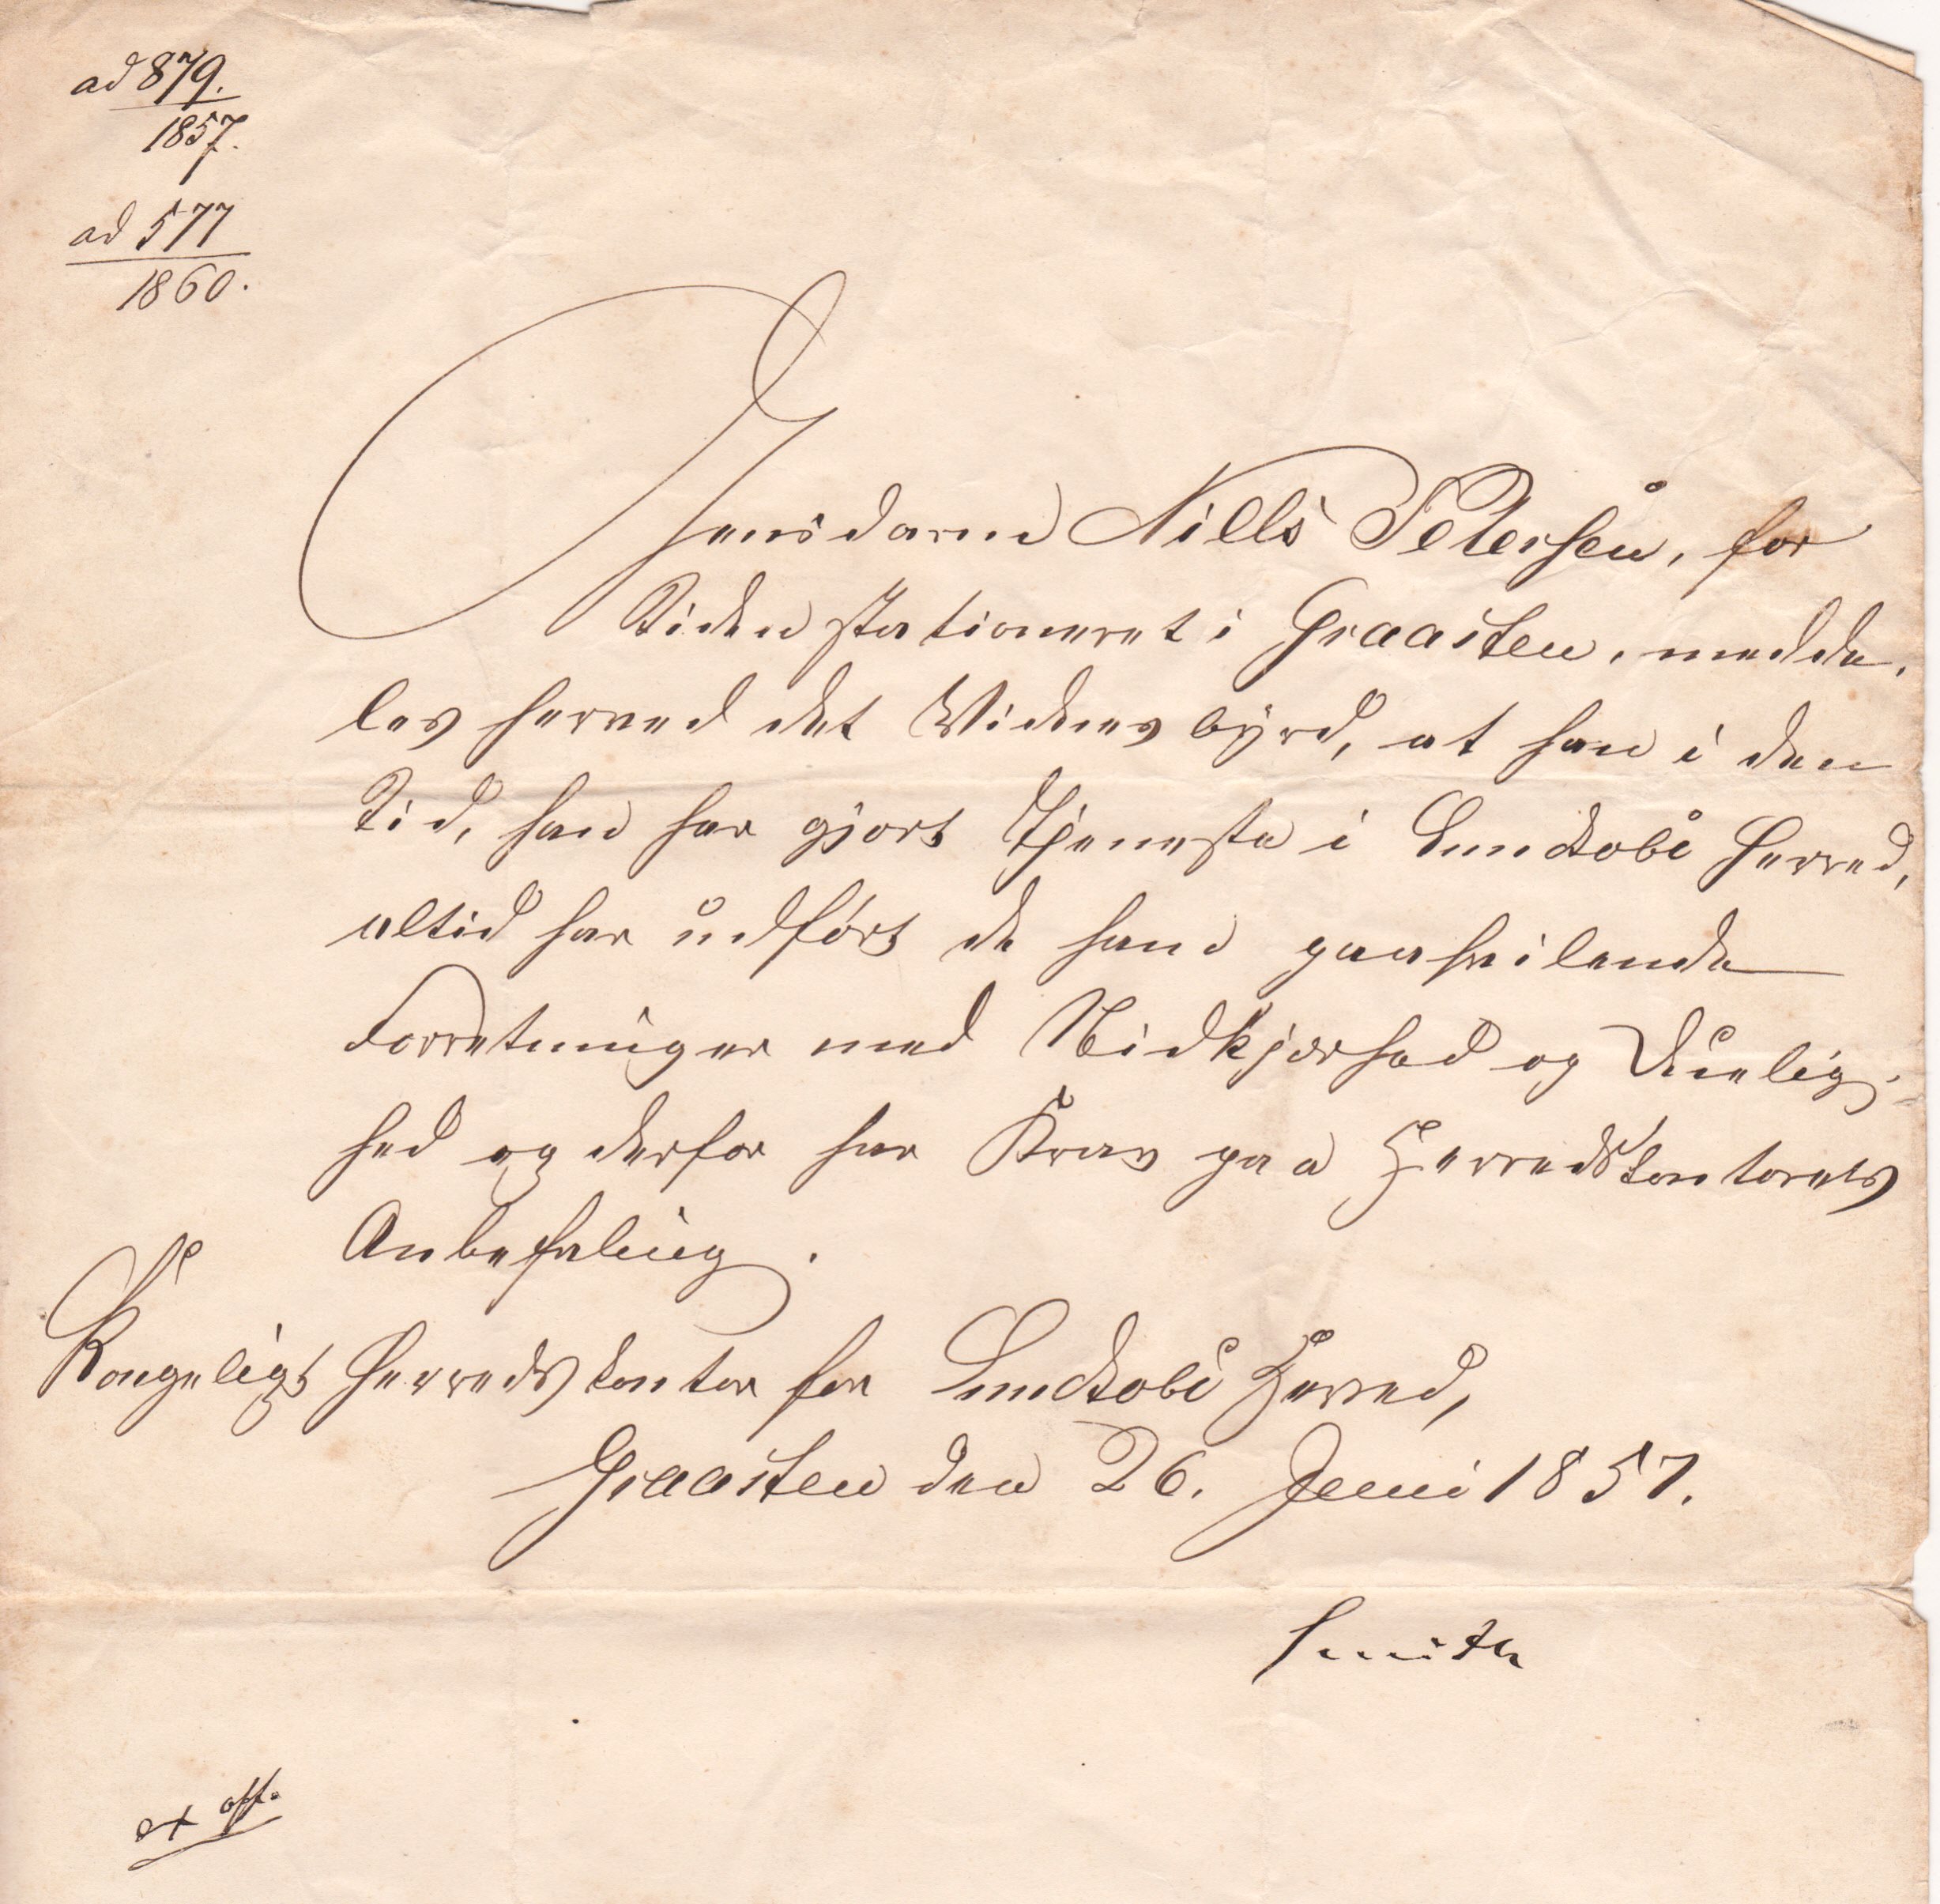 ad 879.
1857.
ad 577
1860.
Gensdarm Nills Petersen, for
Tiden stationeret i Graasten, medde-
les herved det Vidnesbyrd, at han i den
Tid, han har gjort Tjeneste i Lundtoft Herred,
altid har udført de ham paahvilende
Forretninger med Nidkjærhed og Duelig-
hed og derfor har Krav paa Herredskontorets
Anbefaling.
Kongeligt Herredskontor for Lundtoft Herred,
Graasten den 26. Juni 1857.
Smith
ex off.